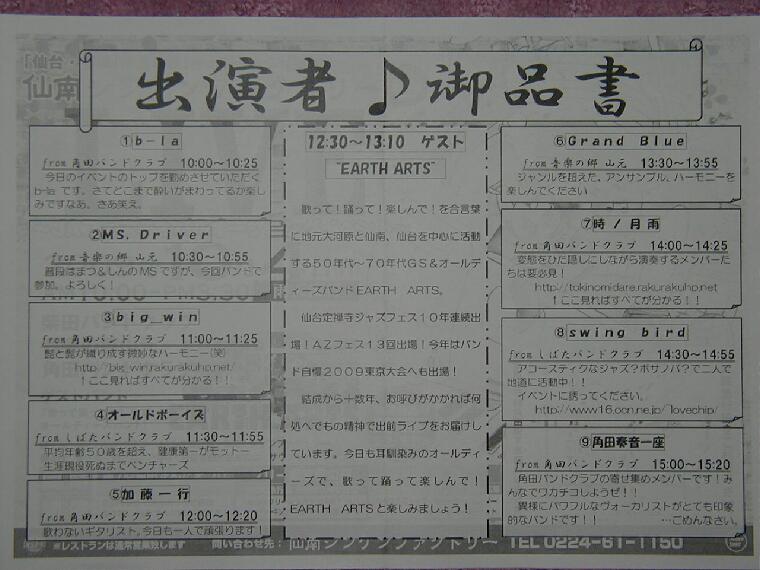 出演者♪御品書
①b-la
from 角田バンドクラブ 10:00～10:25
今日のイベントのトップを勤めさせていただく
b-la です。さてどこまで酔いがまわってるか楽し
みですなあ。さあ笑え。
②MS. Driver
from 音楽の郷 山元 10:30～10:55
普段はまつ＆しんのMSですが、今回バンドで
参加。よろしく！
③big_win
from 角田バンドクラブ 11:00～11:25
髭と髭が織り成す微妙なハーモニー(笑)
http://big_win.rakurakuhp.net/
↑ここ見ればすべてが分かる！！
④オールドボーイズ
from しばたバンドクラブ 11:30～11:55
平均年齢５０歳を超え、健康第一がモットー
生涯現役死ぬまでベンチャーズ
⑤加藤一行
from 角田バンドクラブ 12:00～12:20
歌わないギタリスト。今日も一人で頑張ります！
12:30～13:10 ゲスト
"EARTH ARTS"
歌って！踊って！楽しんで！を合言葉
に地元大河原と仙南、仙台を中心に活動
する５０年代～７０年代ＧＳ＆オールデ
ィーズバンドEARTH ARTS。
仙台定禅寺ジャズフェス１０年連続出
場！AZフェス１３回出場！今年はバン
ド自慢２００９東京大会へも出場！
結成から十数年、お呼びがかかれば何
処へでもの精神で出前ライブをお届けし
ています。今日も耳馴染みのオールディ
ーズで、歌って踊って楽しんで！
EARTH ARTSと楽しみましょう！
⑥Grand Blue
from 音楽の郷 山元 13:30～13:55
ジャンルを超えた、アンサンブル、ハーモニーを
楽しんでください
⑦時ノ月雨
from 角田バンドクラブ 14:00～14:25
変態をひた隠しにしながら演奏するメンバーた
ちは要必見！
http://tokinomidare.rakurakuhp.net
↑ここ見ればすべてが分かる！！
⑧swing bird
from しばたバンドクラブ 14:30～14:55
アコースティックなジャズ？ボサノバ？で二人で
地道に活動中！！
イベントに誘ってください。
http://www16.ocn.ne.jp/~lovechip/
⑨角田奏音一座
from 角田バンドクラブ 15:00～15:20
角田バンドクラブの寄せ集めメンバーです！み
んなでワカチコしようゼ！！
異様にパワフルなヴォーカリストがとても印象
的なバンドです！！ …ごめんなさい。
※レストランは通常営業致します 問い合わせ先：仙南シンケンファクトリー TEL 0224-61-1150